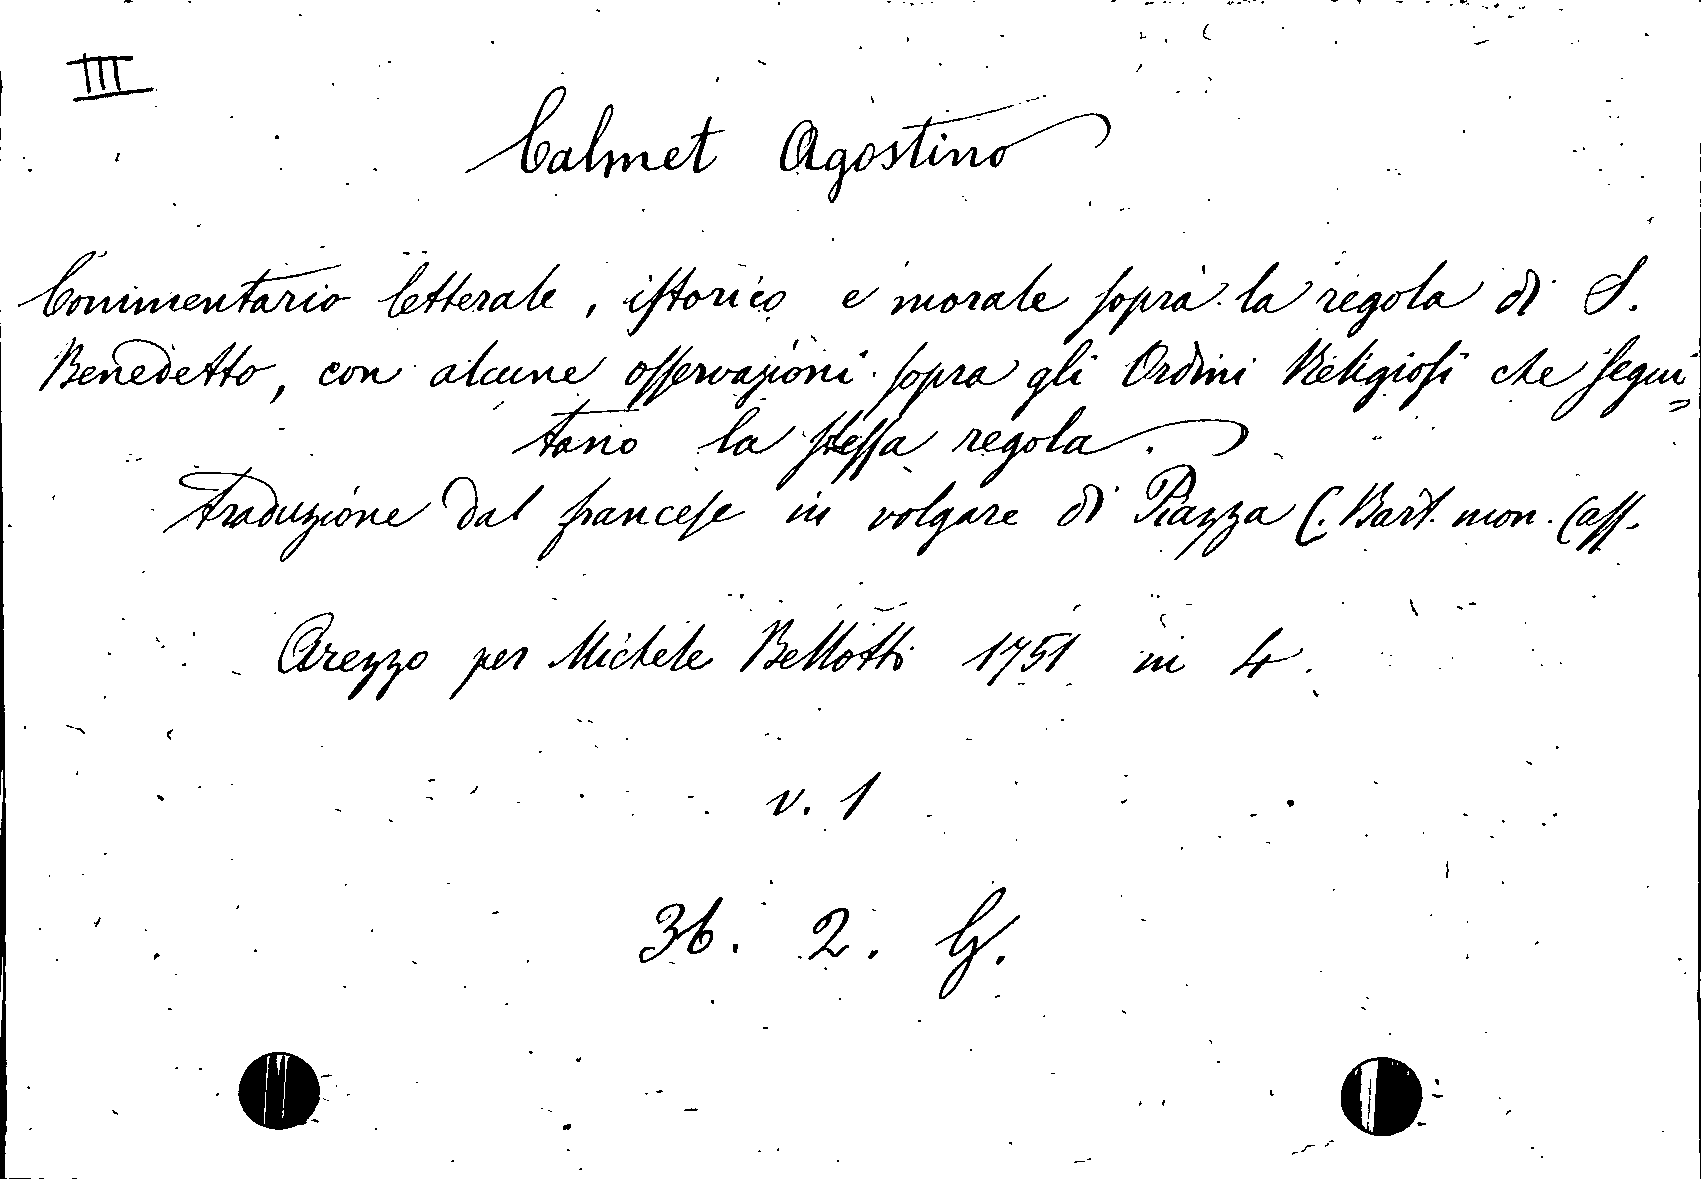 III
Calmet Agostino
Commentario letterale, istorico e morale sopra la regola di S.
Benedetto, con alcune osservazioni sopra gli Ordini Religiosi che segui=
tano la stessa regola.
Traduzione dal francese in volgare di Piazza C. Bart. mon. Cass.
Arezzo per Michele Bellotti 1751 in 4.
v. 1
36. 2. G.